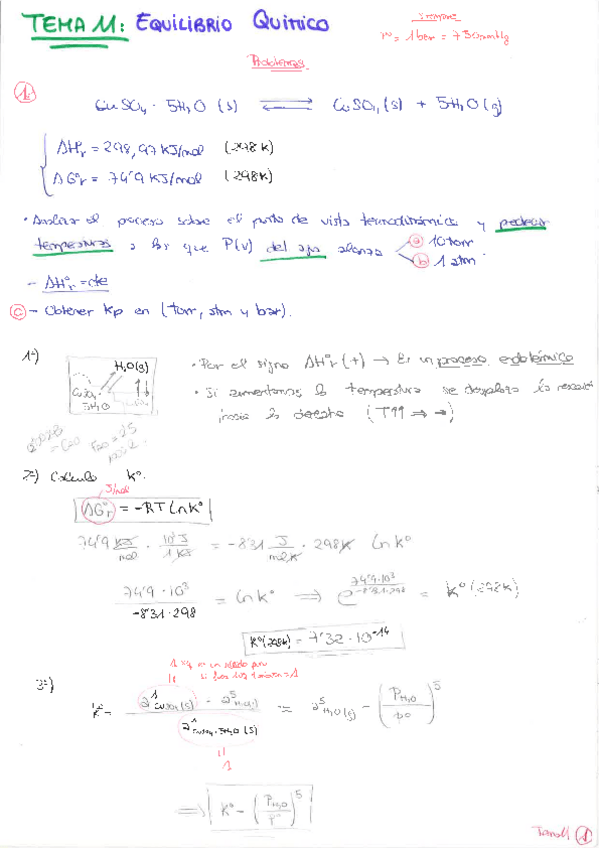 TEMA 11: EQUILIBRIO QUÍMICO
Siempre
Pº = 1 bar = 750 mmHg
Problemas
1.
CuSO4 · 5H2O (s) ⇌ CuSO4 (s) + 5H2O (g)
ΔHºr = 298,97 KJ/mol (298K)
ΔGºr = 74'9 KJ/mol (298K)
• Analizar el proceso sobre el punto de vista termodinámico y predecir
temperaturas a las que P(v) del agua alcanza a 10 torr
b 1 atm
- ΔHºr = cte
c - Obtener Kp en (torr, atm y bar).
1º)
H2O(g)
CuSO4
5H2O
• Por el signo ΔHºr (+) → Es un proceso endotérmico
• Si aumentamos la temperatura se desplaza la reacción
hacia la derecha (T↑↑ ⇒ →)
2º) Calculo Kº.
J/mol
ΔGºr = -RT Ln Kº
74'9 KJ/mol · 10³ J / 1 KJ = -8'31 J/mol K · 298K Ln Kº
74'9 · 10³ / -8'31 · 298 = Ln Kº ⇒ e^(74'9·10³ / -8'31·298) = Kº (298K)
Kº(298K) = 7'32 · 10⁻¹⁴
3º)
Kº = a¹CuSO4 (s) · a⁵H2O(g) / a¹CuSO4·5H2O (s) ≈ a⁵H2O (g) = (PH2O / Pº)⁵
1
⇒ Kº = (PH2O / Pº)⁵
Tema 11 1